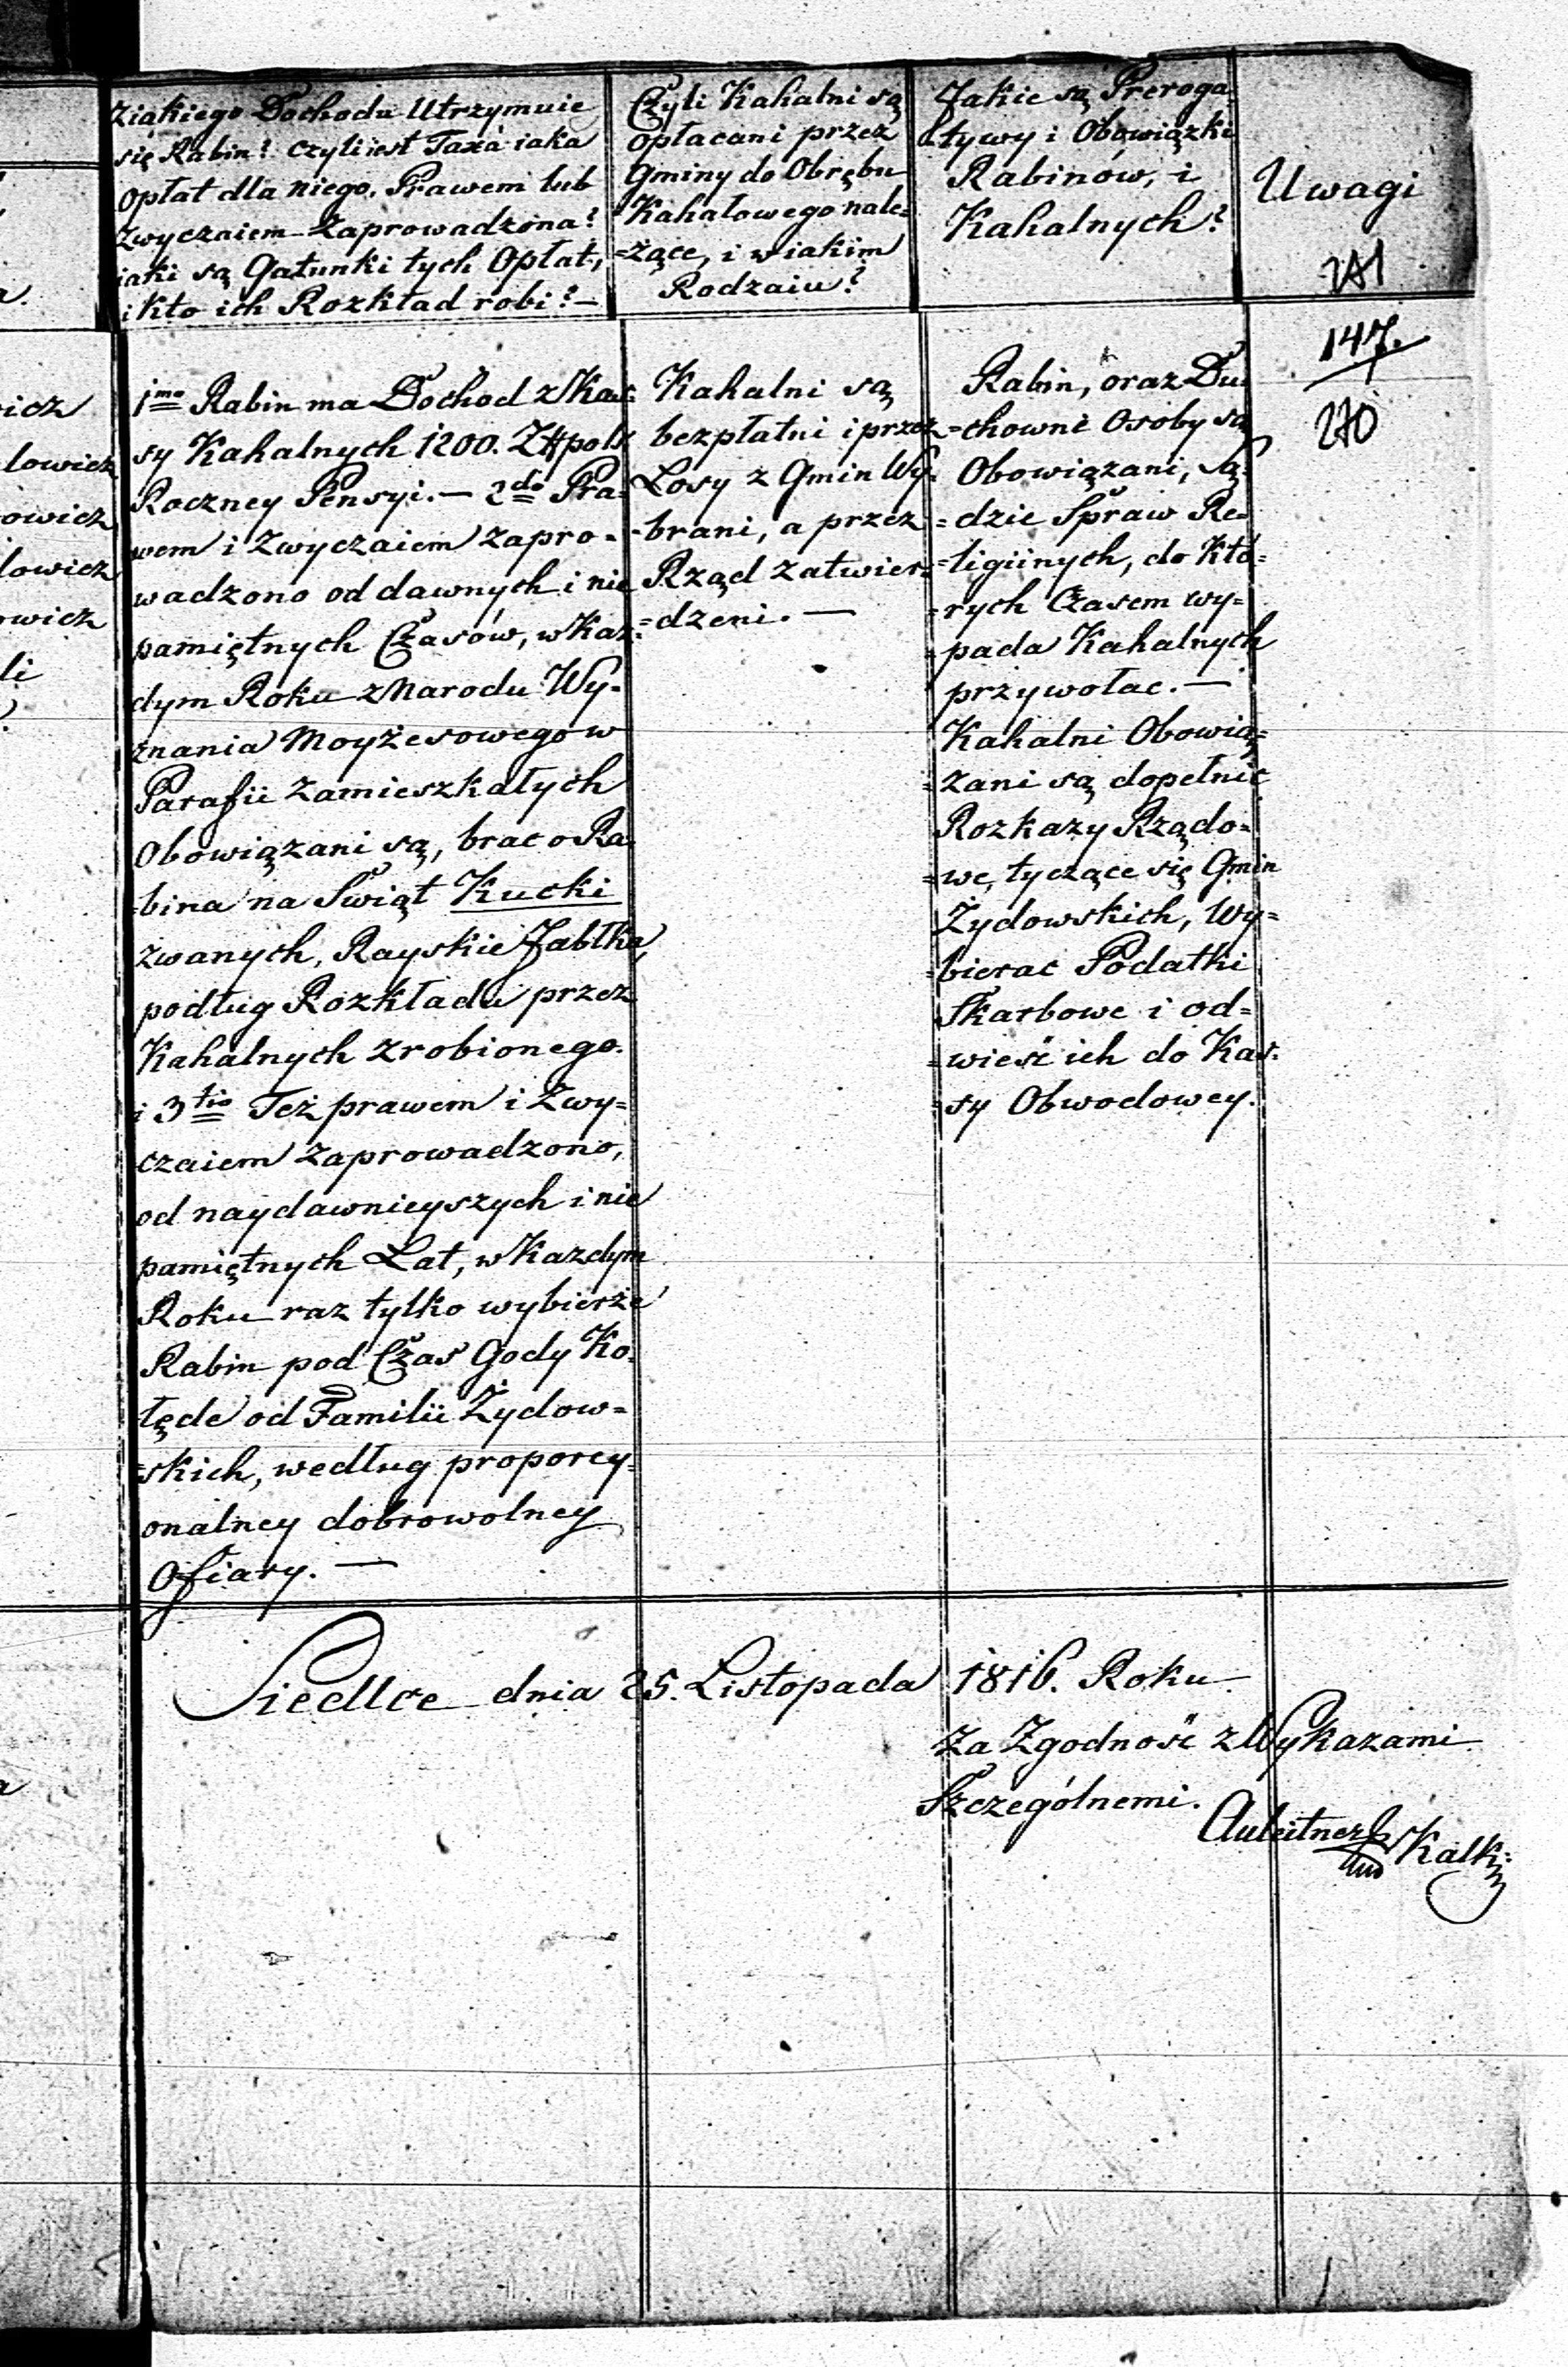 Ziakiego Dochodu Utrzymuie
się Rabin? czyli iest Taxa iaka
Opłat dla niego, Prawem lub
Zwyczaiem Zaprowadzona?
iaki są Gatunki tych Opłat,
i Kto ich Rozkład robi? —
Czyli Kahalni są
opłacani przez
Gminy do Obrębu
Kahałowego nale=
=żące, i w iakim
Rodzaiu?
Jakie są Preroga
tywy i Obowiązki
Rabinów, i
Kahalnych?
Uwagi
271
147.
270
icz
lowicz
owicz
lowicz
owicz
li
a.
1mo Rabin ma Dochod z Kas=
sy Kahalnych 1200. Złpols
Roczney Pensyi. — 2do Pra=
wem i Zwyczaiem zapro=
wadzono od dawnych i nie
pamiętnych Czasów, w Kaz=
dym Roku z Narodu Wy=
znania Moyżesowego w
Parafii Zamieszkałych
Obowiązani są, brac o Ra=
bina na Swiąt Kucki
zwanych, Rayskie Jabłka,
podług Rozkładu przez
Kahalnych zrobionego.
i 3tio Też prawem i Zwy=
czaiem Zaprowadzono,
od naydawnieyszych i nie
pamiętnych Lat, w Kazdym
Roku raz tylko wybierze
Rabin pod Czas Gody Ko=
lędę od Familii Żydow=
skich, według proporcy=
onalney dobrowolney
Ofiary. —
Kahalni są
bezpłatni i przez
Losy z Gmin Wy=
=brani, a przez
Rząd zatwier=
=dzeni. —
Rabin, oraz Du=
=chowne Osoby są
Obowiązani, Są=
=dzie Spraw Re=
=ligiinych, do Któ=
=rych Czasem wy=
=pada Kahalnych
przywołac. —
Kahalni Obowią=
=zani są dopełnic
Rozkazy Rządo=
=we, tyczące się Gmin
Żydowskich, Wy=
=bierac Podatki
Skarbowe i od=
=wieść ich do Kas=
=sy Obwodowey.
Siedlce dnia 25. Listopada 1816. Roku
Za Zgodność z Wykazami
Szczególnemi.